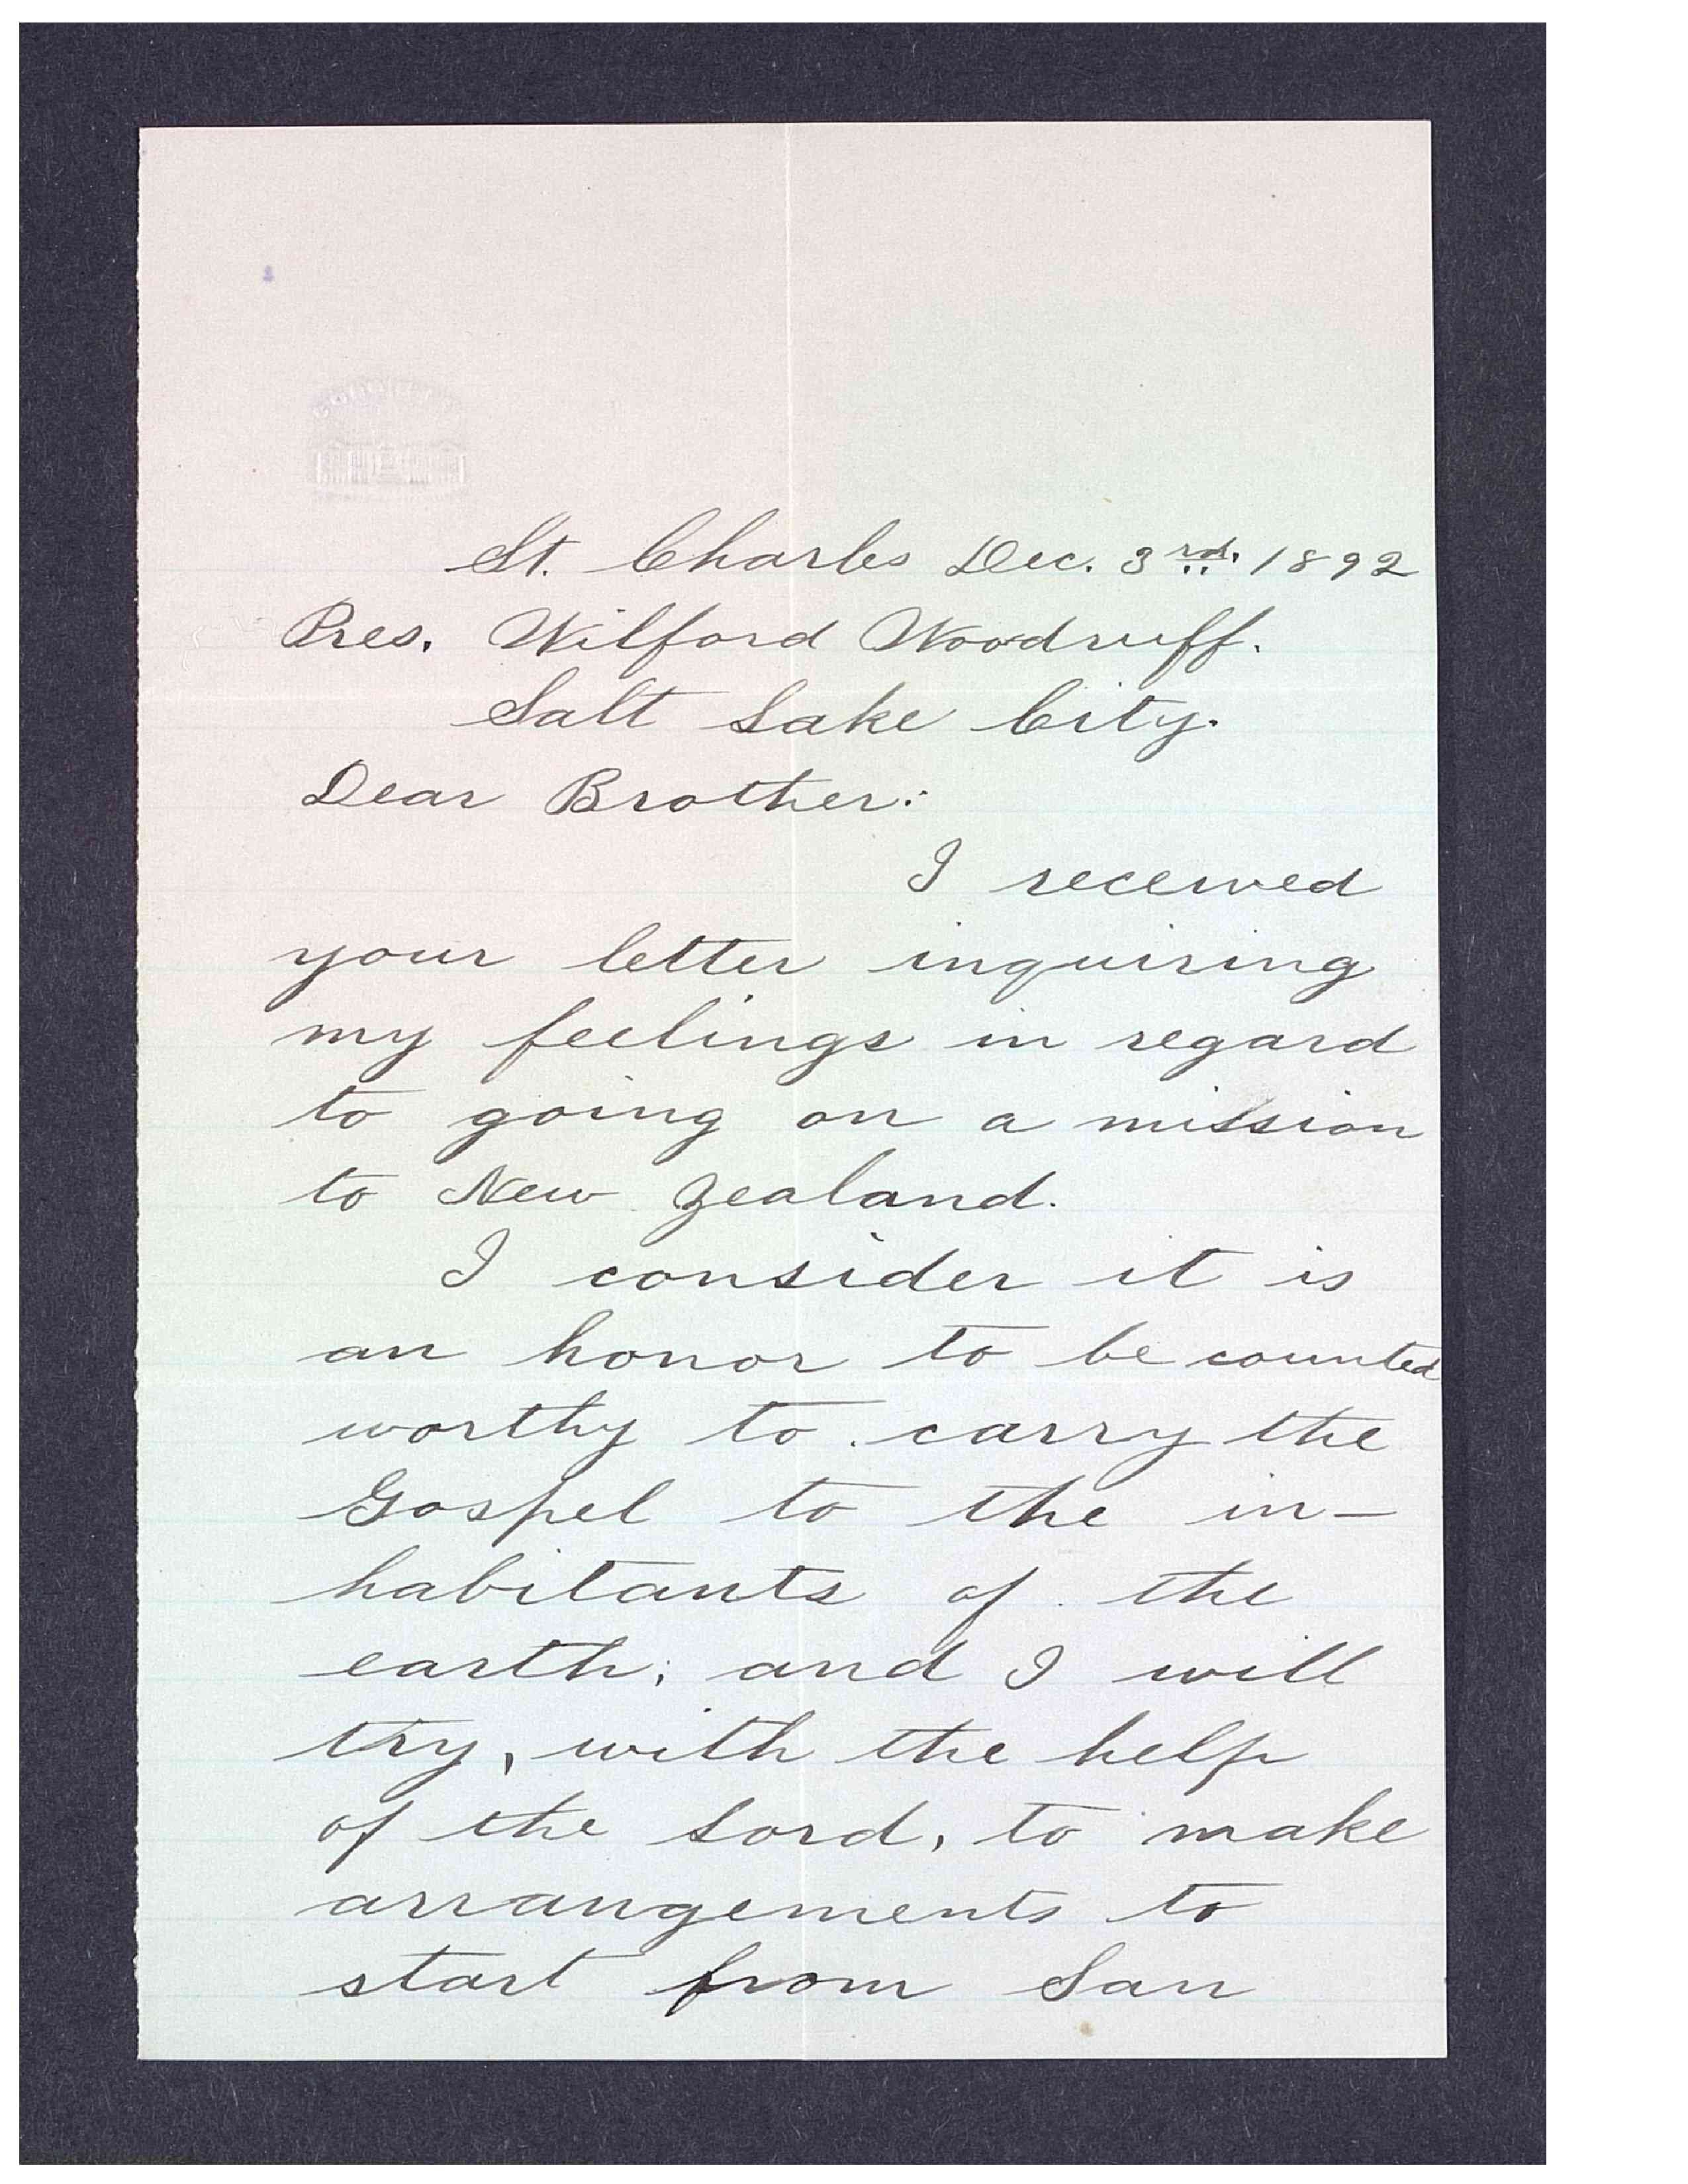 St. Charles Dec. 3rd. 1892
Pres. Wilford Woodruff.
Salt Lake City.
Dear Brother:
I received
your letter inquiring
my feelings in regard
to going on a mission
to New Zealand.
I consider it is
an honor to be counted
worthy to carry the
Gospel to the in-
habitants of the
earth; and I will
try, with the help
of the Lord, to make
arrangements to
start from San